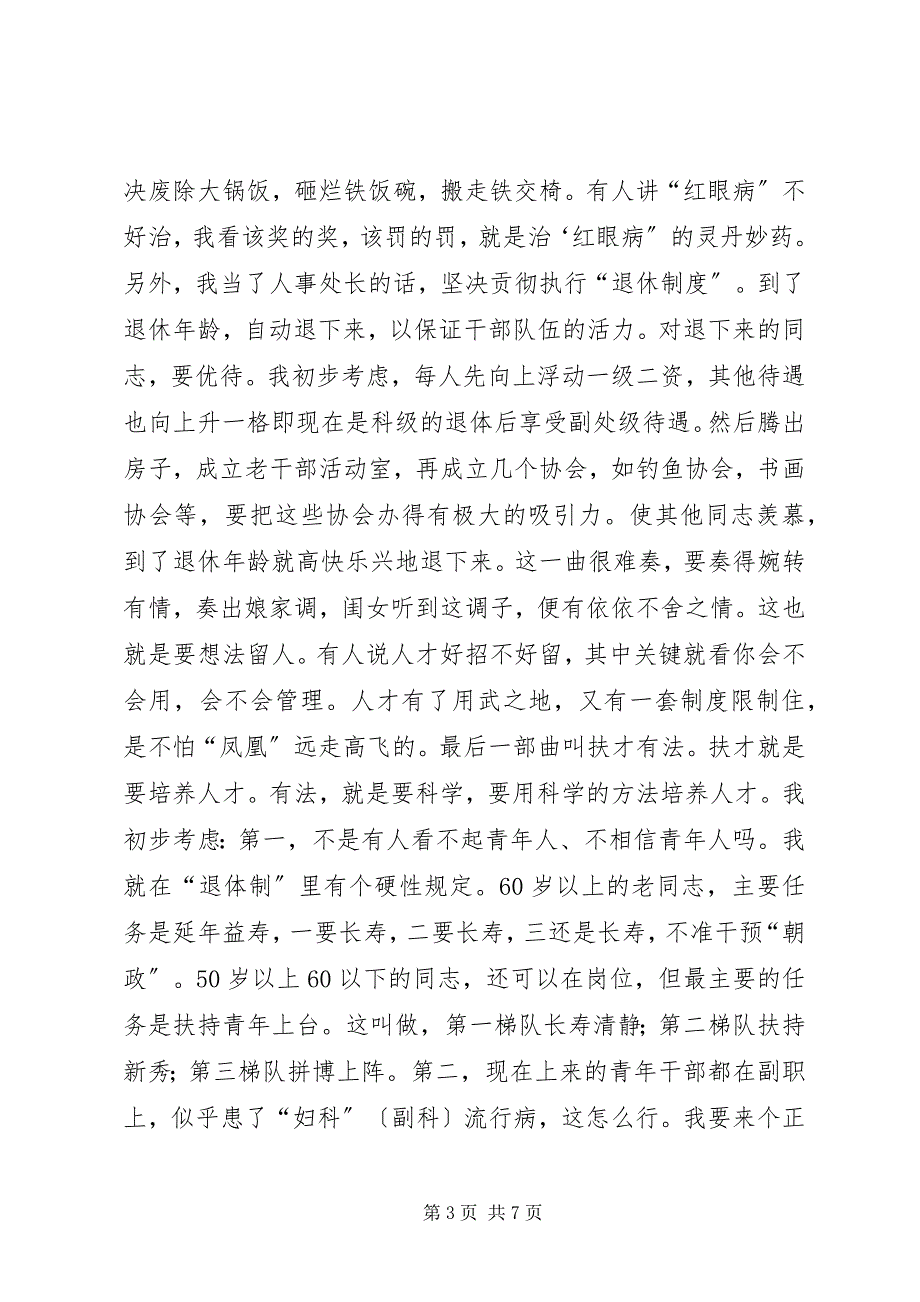 决废除大锅饭，砸烂铁饭碗，搬走铁交椅。有人讲“红眼病〞不
好治，我看该奖的奖，该罚的罚，就是治‘红眼病〞的灵丹妙药。
另外，我当了人事处长的话，坚决贡彻执行“退休制度〞。到了
退休年龄，自动退下来，以保证干部队伍的活力。对退下来的同
志，要优待。我初步考虑，每人先向上浮动一级二资，其他待遇
也向上升一格即现在是科级的退体后享受副处级待遇。然后腾出
房子，成立老干部活动室，再成立几个协会，如钓鱼协会，书画
协会等，要把这些协会办得有极大的吸引力。使其他同志羡慕，
到了退休年龄就高快乐兴地退下来。这一曲很难奏，要奏得婉转
有情，奏出娘家调，闺女听到这调子，便有依依不舍之情。这也
就是要想法留人。有人说人才好招不好留，其中关键就看你会不
会用，会不会管理。人才有了用武之地，又有一套制度限制住，
是不怕“凤凰〞远走高飞的。最后一部曲叫扶才有法。扶才就是
要培养人才。有法，就是要科学，要用科学的方法培养人才。我
初步考虑：第一，不是有人看不起青年人、不相信青年人吗。我
就在“退体制〞里有个硬性规定。60 岁以上的老同志，主要任
务是延年益寿，一要长寿，二要长寿，三还是长寿，不准干预“朝
政〞。50 岁以上 60 以下的同志，还可以在岗位，但最主要的任
务是扶持青年上台。这叫做，第一梯队长寿清静；第二梯队扶持
新秀；第三梯队拼博上阵。第二，现在上来的青年干部都在副职
上，似乎患了“妇科〞〔副科〕流行病，这怎么行。我要来个正
第 3 页 共 7 页